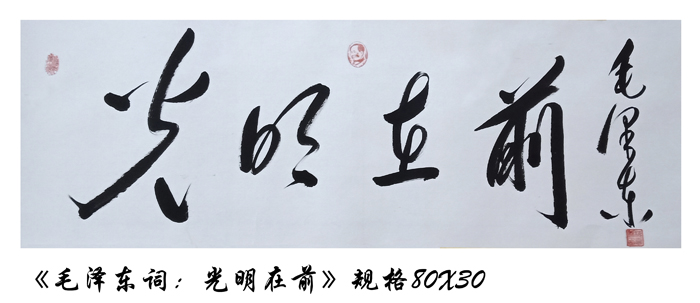 光明在前
毛泽东
《毛泽东词：光明在前》规格80X30